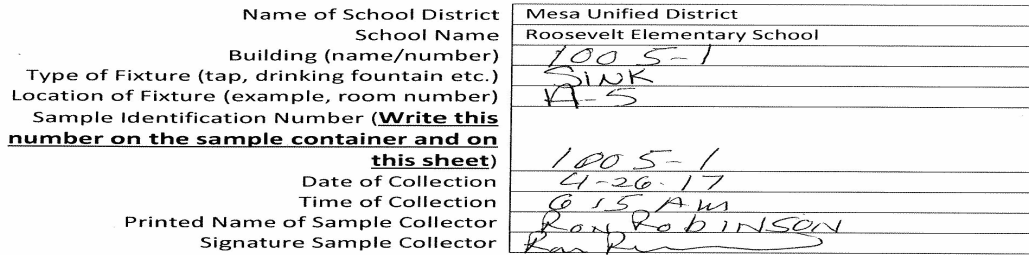 Name of School District Mesa Unified District
School Name Roosevelt Elementary School
Building (name/number) 1005-1
Type of Fixture (tap, drinking fountain etc.) SINK
Location of Fixture (example, room number) A-5
Sample Identification Number (Write this
number on the sample container and on
this sheet) 1005-1
Date of Collection 4-26-17
Time of Collection 6 15 AM
Printed Name of Sample Collector Ron RobINSON
Signature Sample Collector Ron